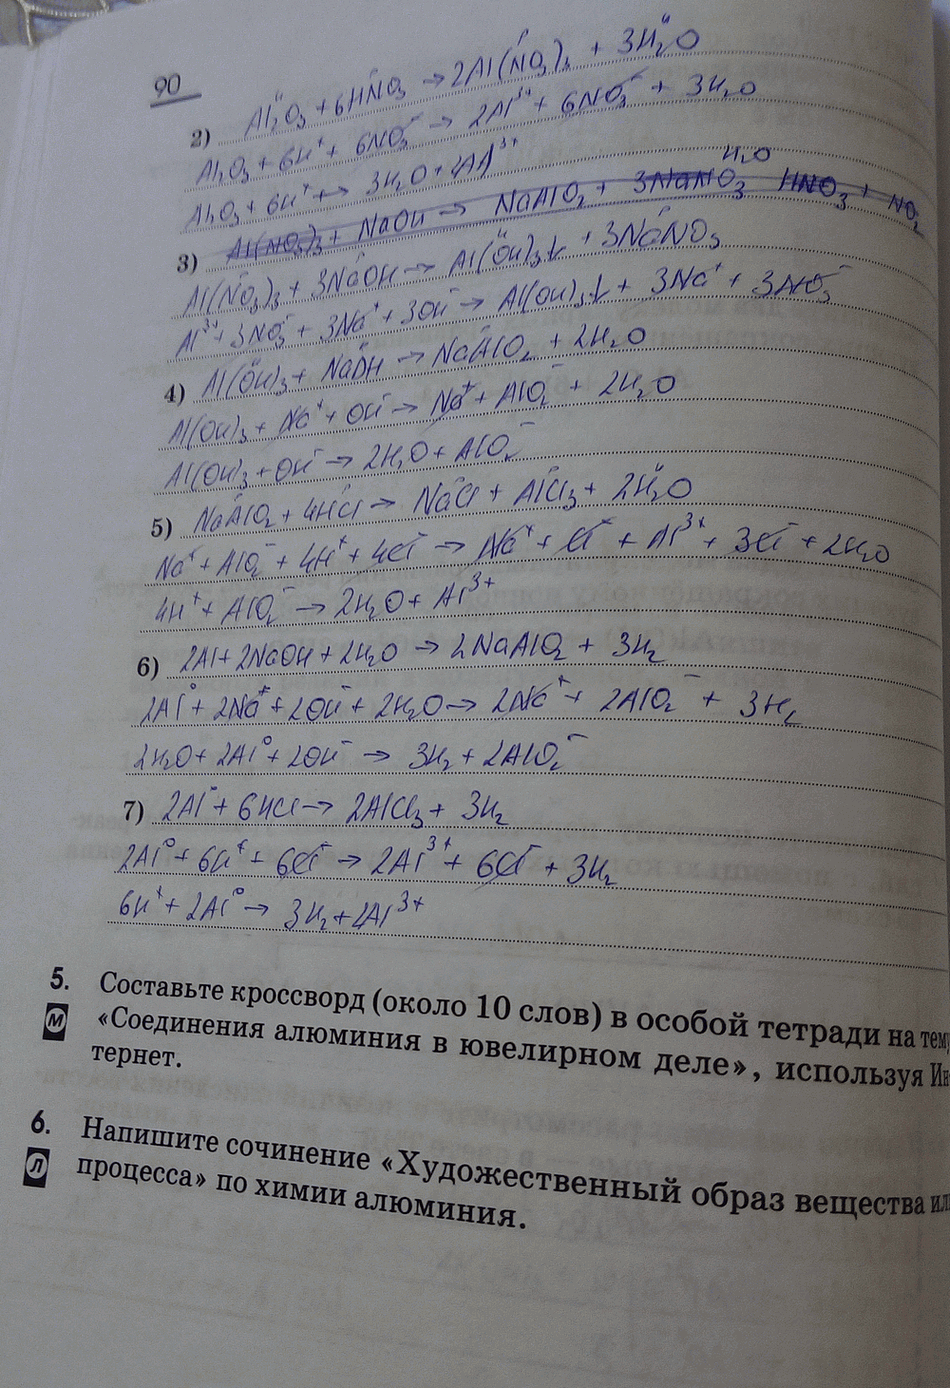 90
2) Al₂O₃ + 6HNO₃ → 2Al(NO₃)₃ + 3H₂O
Al₂O₃ + 6H⁺ + 6NO₃⁻ → 2Al³⁺ + 6NO₃⁻ + 3H₂O
Al₂O₃ + 6H⁺ → 3H₂O + 2Al³⁺
H₂O
3) Al(NO₃)₃ + NaOH → NaAlO₂ + 3NaNO₃ HNO₃ + NO₂
Al(NO₃)₃ + 3NaOH → Al(OH)₃↓ + 3NaNO₃
Al³⁺ + 3NO₃⁻ + 3Na⁺ + 3OH⁻ → Al(OH)₃↓ + 3Na⁺ + 3NO₃⁻
4) Al(OH)₃ + NaOH → NaAlO₂ + 2H₂O
Al(OH)₃ + Na⁺ + OH⁻ → Na⁺ + AlO₂⁻ + 2H₂O
Al(OH)₃ + OH⁻ → 2H₂O + AlO₂⁻
5) NaAlO₂ + 4HCl → NaCl + AlCl₃ + 2H₂O
Na⁺ + AlO₂⁻ + 4H⁺ + 4Cl⁻ → Na⁺ + Cl⁻ + Al³⁺ + 3Cl⁻ + 2H₂O
4H⁺ + AlO₂⁻ → 2H₂O + Al³⁺
6) 2Al + 2NaOH + 2H₂O → 2NaAlO₂ + 3H₂
2Al⁰ + 2Na⁺ + 2OH⁻ + 2H₂O → 2Na⁺ + 2AlO₂⁻ + 3H₂
2H₂O + 2Al⁰ + 2OH⁻ → 3H₂ + 2AlO₂⁻
7) 2Al⁰ + 6HCl → 2AlCl₃ + 3H₂
2Al⁰ + 6H⁺ + 6Cl⁻ → 2Al³⁺ + 6Cl⁻ + 3H₂
6H⁺ + 2Al⁰ → 3H₂ + 2Al³⁺
5. Составьте кроссворд (около 10 слов) в особой тетради на тем
М «Соединения алюминия в ювелирном деле», используя Ин
тернет.
6. Напишите сочинение «Художественный образ вещества ил
Л процесса» по химии алюминия.